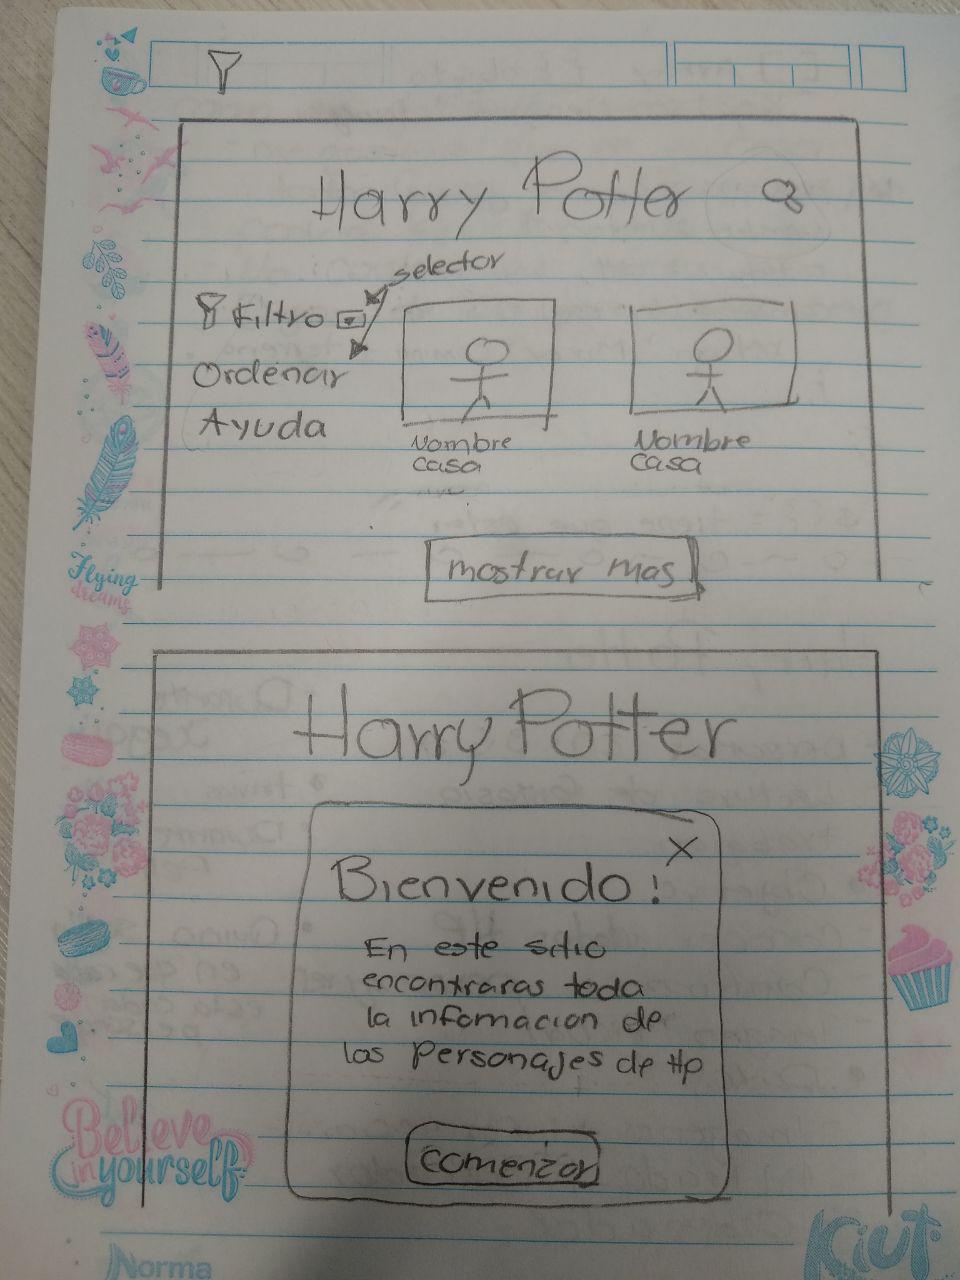 Harry Potter
selector
Filtro
Ordenar
Ayuda
Nombre
casa
Nombre
casa
mostrar mas
Flying
dreams
Harry Potter
X
Bienvenido!
En este sitio
encontraras toda
la infomacion de
los Personajes de Hp
comenzar
Believe
in yourself
Norma
Kiut